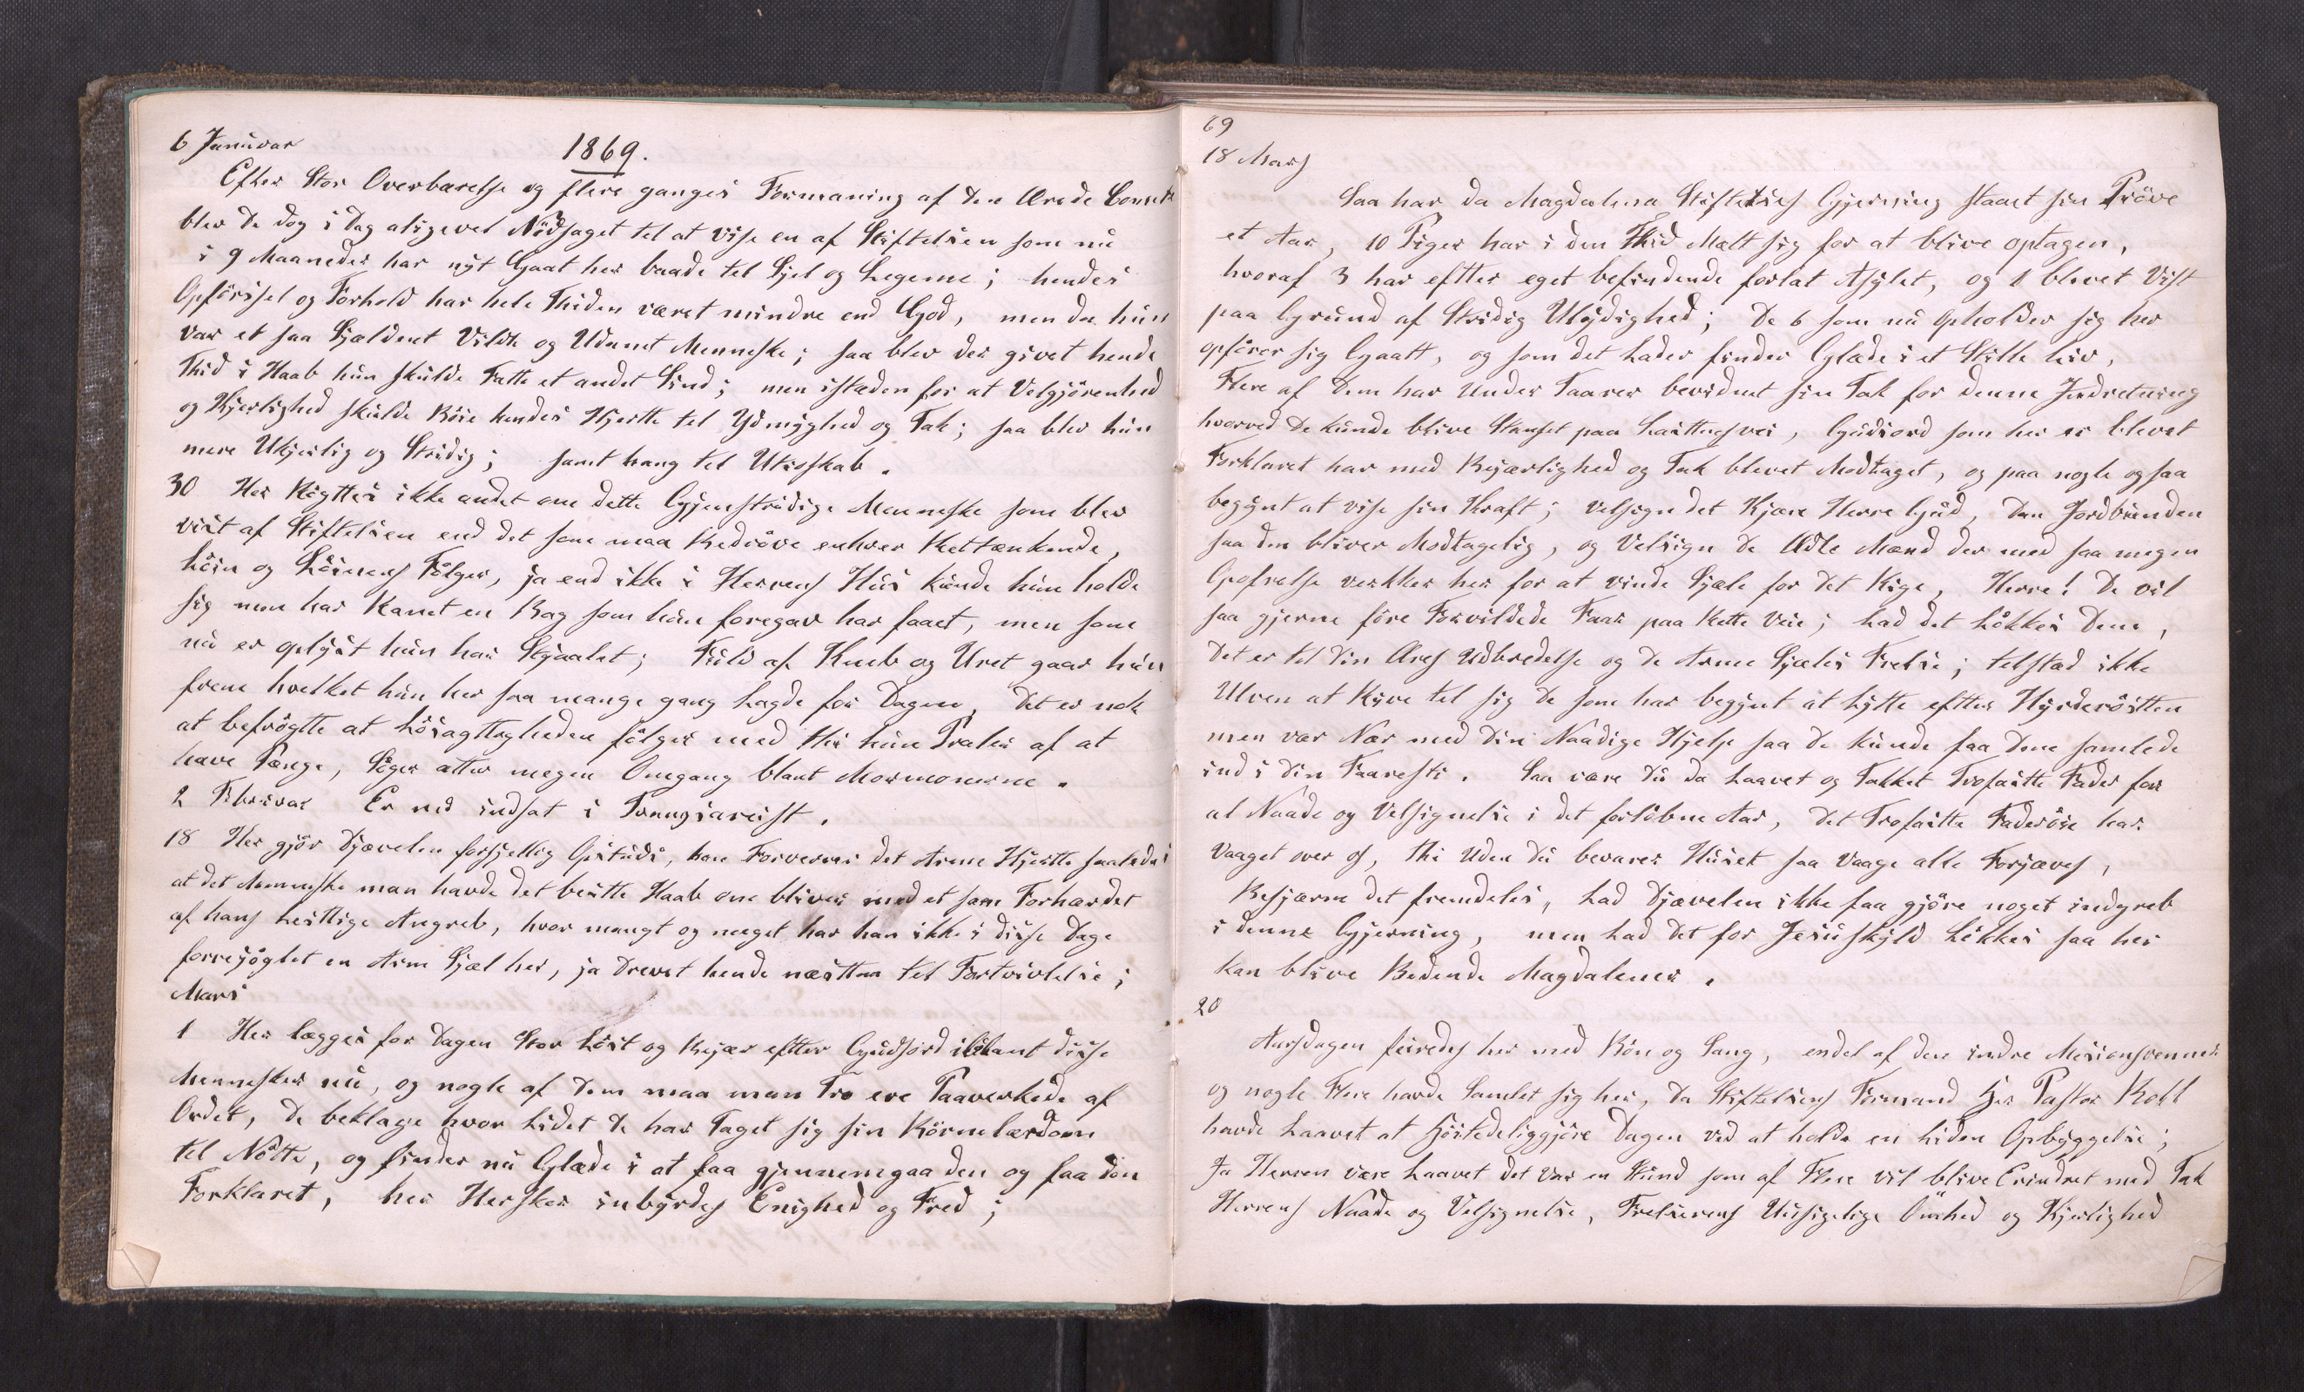 6 Januar
1869.
Efter Stor Overbærelse og flere ganges Formaning af den Ærede Comite
blev de dog i Dag aligevel Nødsaget tel at vise en af Stiftelsen som nu
i 9 Maaneder har nyt Gaat her baade tel Sjel og Legeme; hendes
Opførsel og Forhold har hele Thiden været mindre end God, men da hun
var et saa Sjældent Vildt og Udannet Menneske; saa blev der givet hende
Thid i Haab hun skulde Fatte et andet Sind; men isteden for at Velgjørenhed
og Kjerlighed skulde Bøie hendes Hjertte tel Ydmyghed og Tak; saa blev hun
mere Ukjerlig og Stridig; samt hang tel Utroskab.
30 Her Røgttes ikke andet om dette Gjenstridige Menneske som blev
vist af Stiftelsen end det som maa Bedrøve enhver Rettænkende,
Løgn og Løgnens Følger, ja end ikke i Herrens Hus kunde hun holde
sig men har Ranet en Bog som hun foregav har faaet, men som
nu er oplyst hun har Stjaalet; Fuld af Knub og Uret gaar hun
frem hvelket hun her saa mange gang Lagde for Dagen, det er nok
at befrøgtte at Løsagttigheden følger med thi hun Praler af at
have Penge, Søger atter megen Omgang blant Mormonerne.
2 Februar Er nu indsat i Trangsareist.
18 Her gjør Djævelen forsjellig Opstuds, han Forverrer det Arme Hjertte saaledes
at det Menneske man havde det bestte Haab om bliver med et som Forhærdet
af hans Listtige Angreb, hvor mangt og meget har han ikke i disse Dage
forresøgtet en Arm Sjæl her, ja Drevet hende næstten tel Fortvivlelse;
Mars
1 Her lægges for Dagen Stor Løst og Bejær eftter Gudsord iblant disse
Mennesker nu, og nogle af dem maa man Tro ere Paaverkede af
Ordet, de beklage hvor Lidet de har Taget sig sin Børnelærdom
tel Nøtte, og finder nu Glæde i at faa gjennemgaa den og faa den
Forklaret, her Hersker inbyrdes Enighed og Fred;
69
18 Mars
Saa har da Magdalena Stiftelsens Gjerning staaet sin Prøve
et Aar, 10 Piger har i den Thid Mælt sig for at blive optagen,
hvoraf 3 har eftter eget befindende forlat Asylet, og 1 blevet Vist
paa Grund af Stridig Ulydighed; De 6 som nu Opholder sig her
opfører sig Gaatt, og som det Lader finder Glæde i et Stille Liv,
Flere af dem har Under Taarer bevidnet sin Tak for denne Indretning
hvorved De kunde blive Stanset paa Lasttens vei, Gudsord som her er blevet
Forklaret har med Bejærlighed og Tak blevet Modtaget, og paa nogle ogsaa
begynt at vise sin Kraft; velsign det Kjære Herre Gud, Den Jordbunden
saa den bliver Modtagelig, og Velsign de Ædle Mænd der med saa megen
Opofrelse verkker her for at vinde Sjæle for dit Rige, Herre! De vil
saa gjerne føre Forvildede Faar paa Rette Veie; Lad det Løkkes Dem,
det er tel din Æres Udbredelse og de Arme Sjæles Frelse; telstad ikke
Ulven at Rive tel sig de som har begynt at Lytte eftter Hyrderøstten
men vær Nær med Din Naadige Hjelp saa de kunde faa dem samlede
ind i din Faaresti. Saa være du da Laavet og Takket Trofastte Fader for
al Naade og Velsignelse i det forløbne Aar, det Trofastte Faderøie har
Vaaget over os, thi Uden du bevarer Huset saa Vaage alle Forjæves,
Beskjærm det fremdeles, Lad Djævelen ikke faa gjøre noget indgreb
i denne Gjerning, men Lad det for Jesuskyld Løkkes saa her
Kan blive Bedende Magdalener.
20
Aarsdagen feiredes her med Bøn og Sang, endel af den indre Misionsvenner
og nogle Flere havde Samlet sig her, da Stiftelsens Formand Hr Pastor Roll
havde Laavet at Høitedeliggjøre Dagen ved at holde en Liden Opbyggelse;
Ja Herren være Laavet det var en Stund som af Flere vil blive Erindret med Tak
Herrens Naade og Velsignelse, Frelserens Uusigelige Ømhed og Kjerlighed